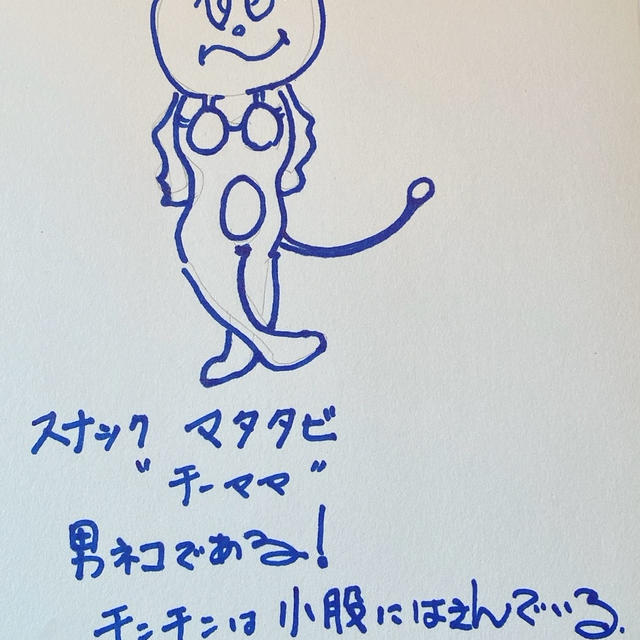 スナック マタタビ
"チーママ"
男ネコである!
チンチンは小股にはさんでいる.